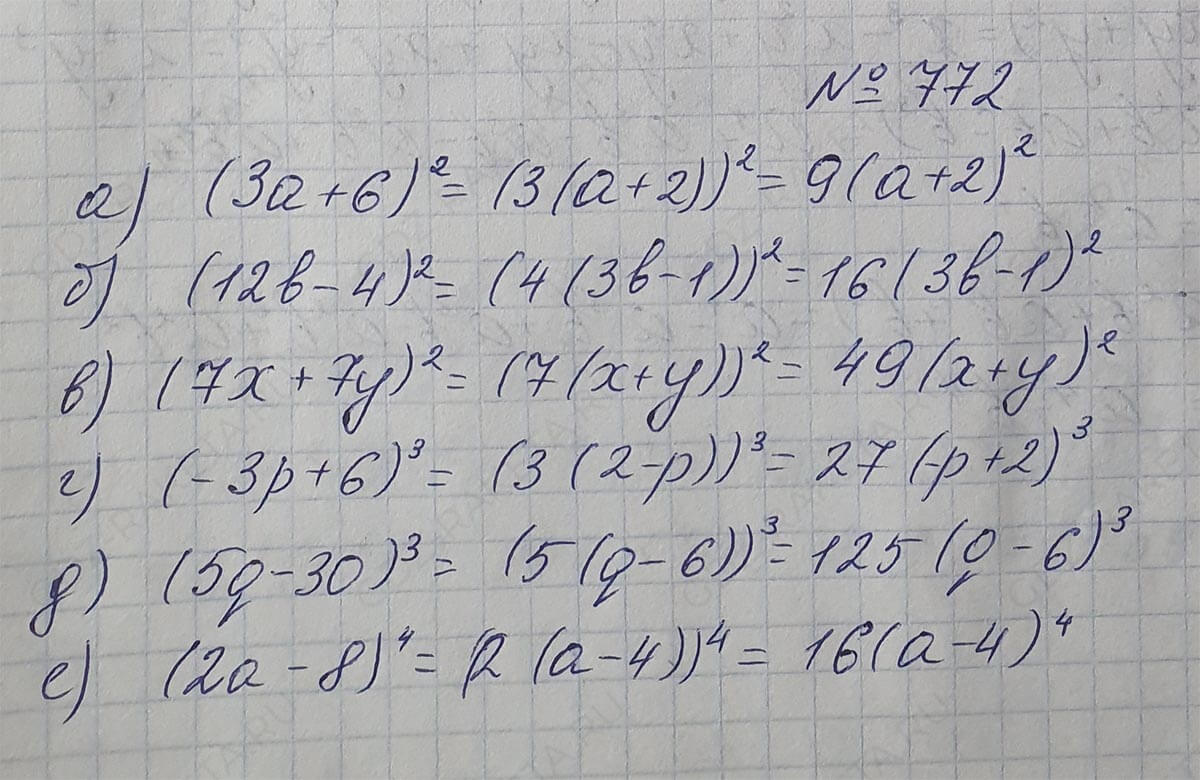 № 772
а) (3a+6)²= (3(a+2))²= 9(a+2)²
б) (12b-4)²= (4(3b-1))²= 16(3b-1)²
в) (7x+7y)²= (7(x+y))²= 49(x+y)²
г) (-3p+6)³= (3(2-p))³= 27(-p+2)³
д) (5q-30)³= (5(q-6))³= 125(q-6)³
е) (2a-8)⁴= (2(a-4))⁴= 16(a-4)⁴